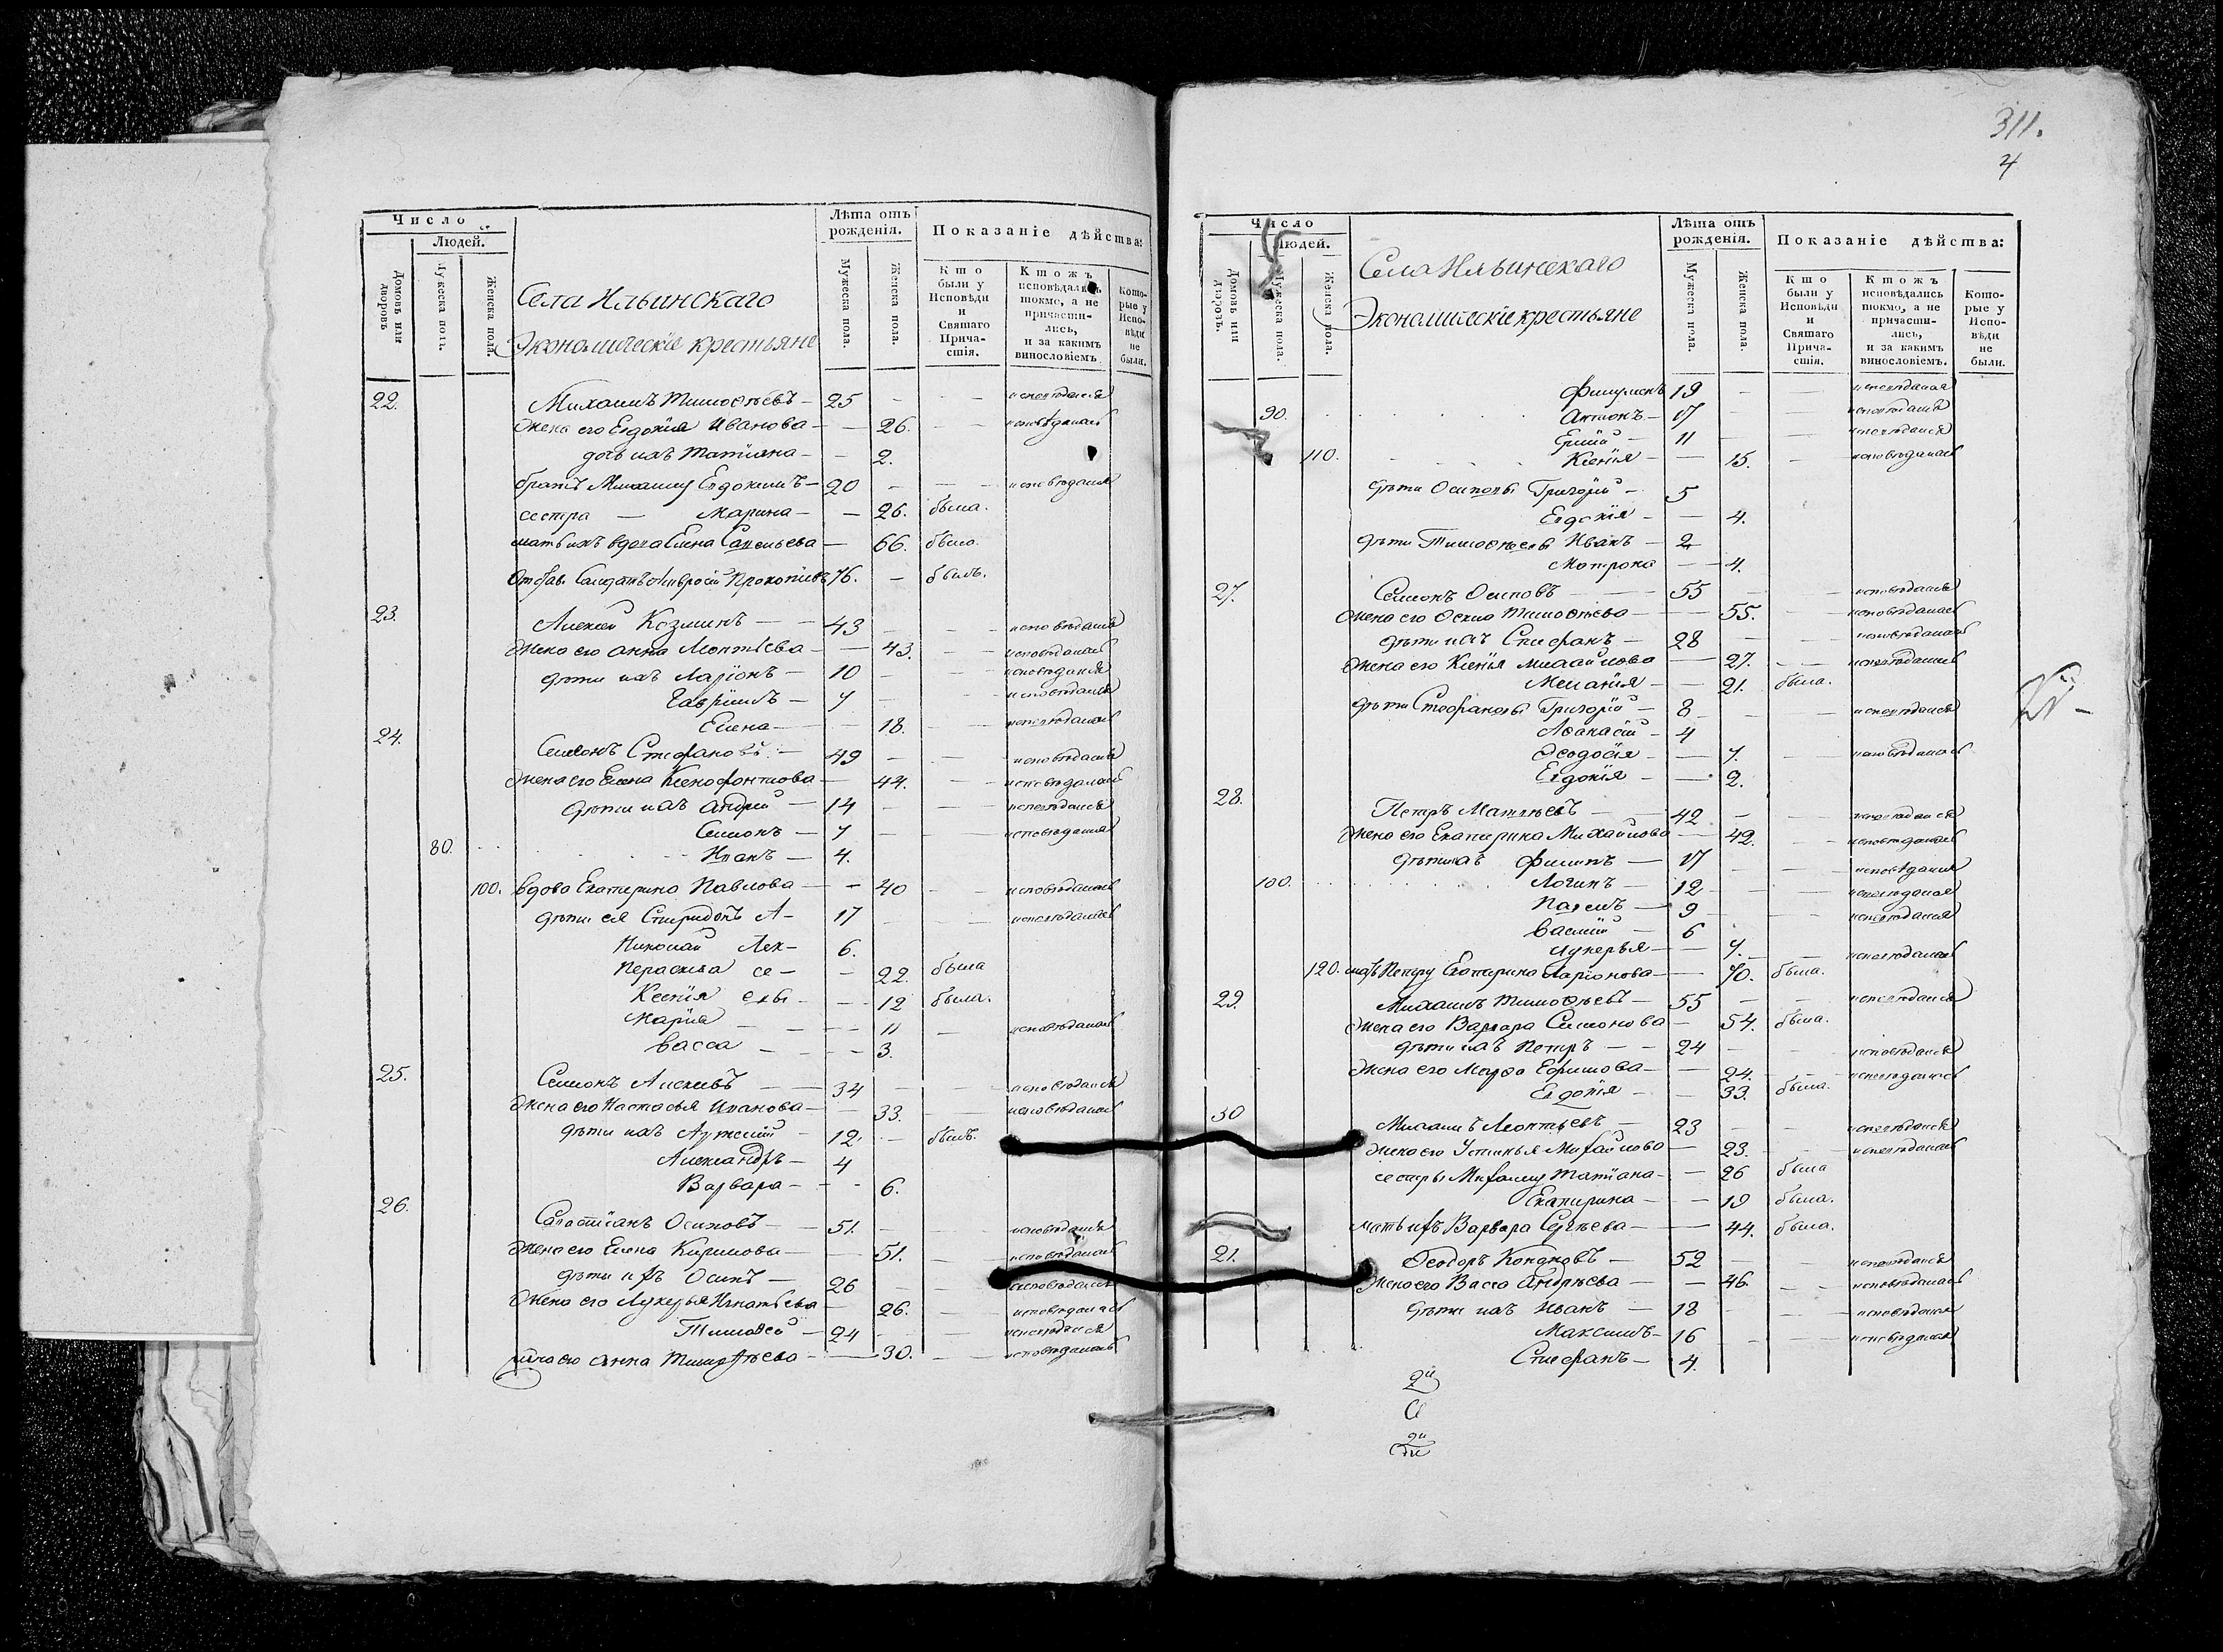 Число
Людей.
Домовъ или дворовъ
Мужеска полъ.
Женска пола.
Села Ильинскаго
Экономическіе крестьяне
Лѣта отъ рожденія.
Мужеска пола.
Женска пола.
Показаніе дѣйства:
Кто были у Исповѣди и Святаго Прича-стія.
Ктожъ исповѣдались токмо, а не причасти-лись, и за какимъ винословіемъ
Кото-рые у Испо-вѣди не были.
22. Михаилъ Тимоѳѣевъ — 25 — — исповѣдался
Жена его Евдокія Иванова — — 26. — исповѣдалась
дочь ихъ Татіяна — — 2.
братъ Михаилу Евдокимъ — 20 — — исповѣдался
сестра — Марина — — 26. была.
мать ихъ вдова Елена Савельева — 66. была.
Отстав. Салдатъ Амвросій Прокопіевъ 76. — былъ.
23. Алексѣй Козминъ — — 43 — — исповѣдался
Жена его Анна Леонтьева — — 43. — исповѣдалась
дѣти ихъ Ларіонъ — 10 — исповѣдался
Гавріилъ — 7 — исповѣдался
Елена — — 18. — исповѣдалась
24. Симеонъ Стефановъ — 49 — — исповѣдался
Жена его Елена Ксенофонтова — 44. — исповѣдалась
дѣти ихъ Андрей — 14 — — исповѣдался
Симонъ — 7 — — исповѣдался
80. Иванъ — 4.
100. вдова Екатерина Павлова — — 40 — исповѣдалась
дѣти ея Спиридонъ А — 17 — — исповѣдался
Николай Лек — 6.
Пераскева се — — 22. была
Ксенія евы — — 12 была.
Марія — — 11 — исповѣдалась
Васса — — 3.
25. Симонъ Алексѣевъ — — 34 — — исповѣдался
Жена его Настасья Иванова — — 33. — исповѣдалась
дѣти ихъ Артемій — 12. — былъ.
Александръ — 4
Варвара — — 6.
26. Савастіанъ Осиповъ — 51. — — исповѣдался
Жена его Елена Кирилова — — 51. — исповѣдалась
дѣти ихъ Осипъ — 26 — исповѣдался
Жена его Лукерья Игнатьева — 26. — исповѣдалась
Тимоѳей — 24 — — исповѣдался
жена его Анна Тимоѳѣева — — 30. — исповѣдалась
311.
4
Число
Людей.
Домовъ или дворовъ.
Мужеска пола.
Женска пола.
Села Ильинскаго
Экономическіе крестьяне
Лѣта отъ рожденія.
Мужеска пола.
Женска пола.
Показаніе дѣйства:
Кто были у Исповѣди и Святаго Прича-стія.
Ктожъ исповѣдались токмо, а не причасти-лись, и за какимъ винословіемъ.
Кото-рые у Испо-вѣди не были.
19 — — исповѣдался
90. Антонъ — 17 — — исповѣдался
11 — — исповѣдался
110. Ксенія — — 15. — исповѣдалась
дѣти Осиповы Григорій — 5
Евдокія — — 4.
дѣти Тимоѳѣевы Иванъ — 2
Матрона — — 4.
27. Симонъ Осиповъ — — 55 — исповѣдался
Жена его Ѳекла Тимоѳѣева — — 55. — исповѣдалась
дѣти ихъ Стефанъ — 28 — — исповѣдался
Жена его Ксенія Михайлова — 27. — исповѣдалась
Меланія — — 21. была.
дѣти Стефановы Григорій — 8 — — исповѣдался
Аѳанасій — 4
Ѳеодосія — — 7. — исповѣдалась
Евдокія — — 2.
28. Петръ Матвѣевъ — — 42 — — исповѣдался
Жена его Екатерина Михайлова — 42. — исповѣдалась
дѣти ихъ Филипъ — 17 — — исповѣдался
100. Логинъ — 12 — — исповѣдался
Павелъ — 9 — — исповѣдался
Василій — 6
Лукерья — — 7. — исповѣдалась
120. мать Петру Екатерина Ларіонова — — 70. была.
29. Михаилъ Тимоѳѣевъ — 55 — — исповѣдался
Жена его Варвара Симонова — 54. была.
дѣти ихъ Петръ — — 24 — — исповѣдался
Жена его Марфа Ефимова — — 24. — исповѣдалась
Евдокія — — 33. была.
30 Михаилъ Леонтьевъ — 23 — — исповѣдался
Жена его Устинья Михайлова — 23. — исповѣдалась
сестры Михаилу Татіана — — 26 была
Екатерина — — 19 была.
мать ихъ Варвара Сергѣева — — 44. была.
21. Ѳеодоръ Кононовъ — 52 — исповѣдался
Жена его Васса Андрѣева — — 46. — исповѣдалась
дѣти ихъ Иванъ — 18 — — исповѣдался
Максимъ — 16 — — исповѣдался
Стефанъ — 4.